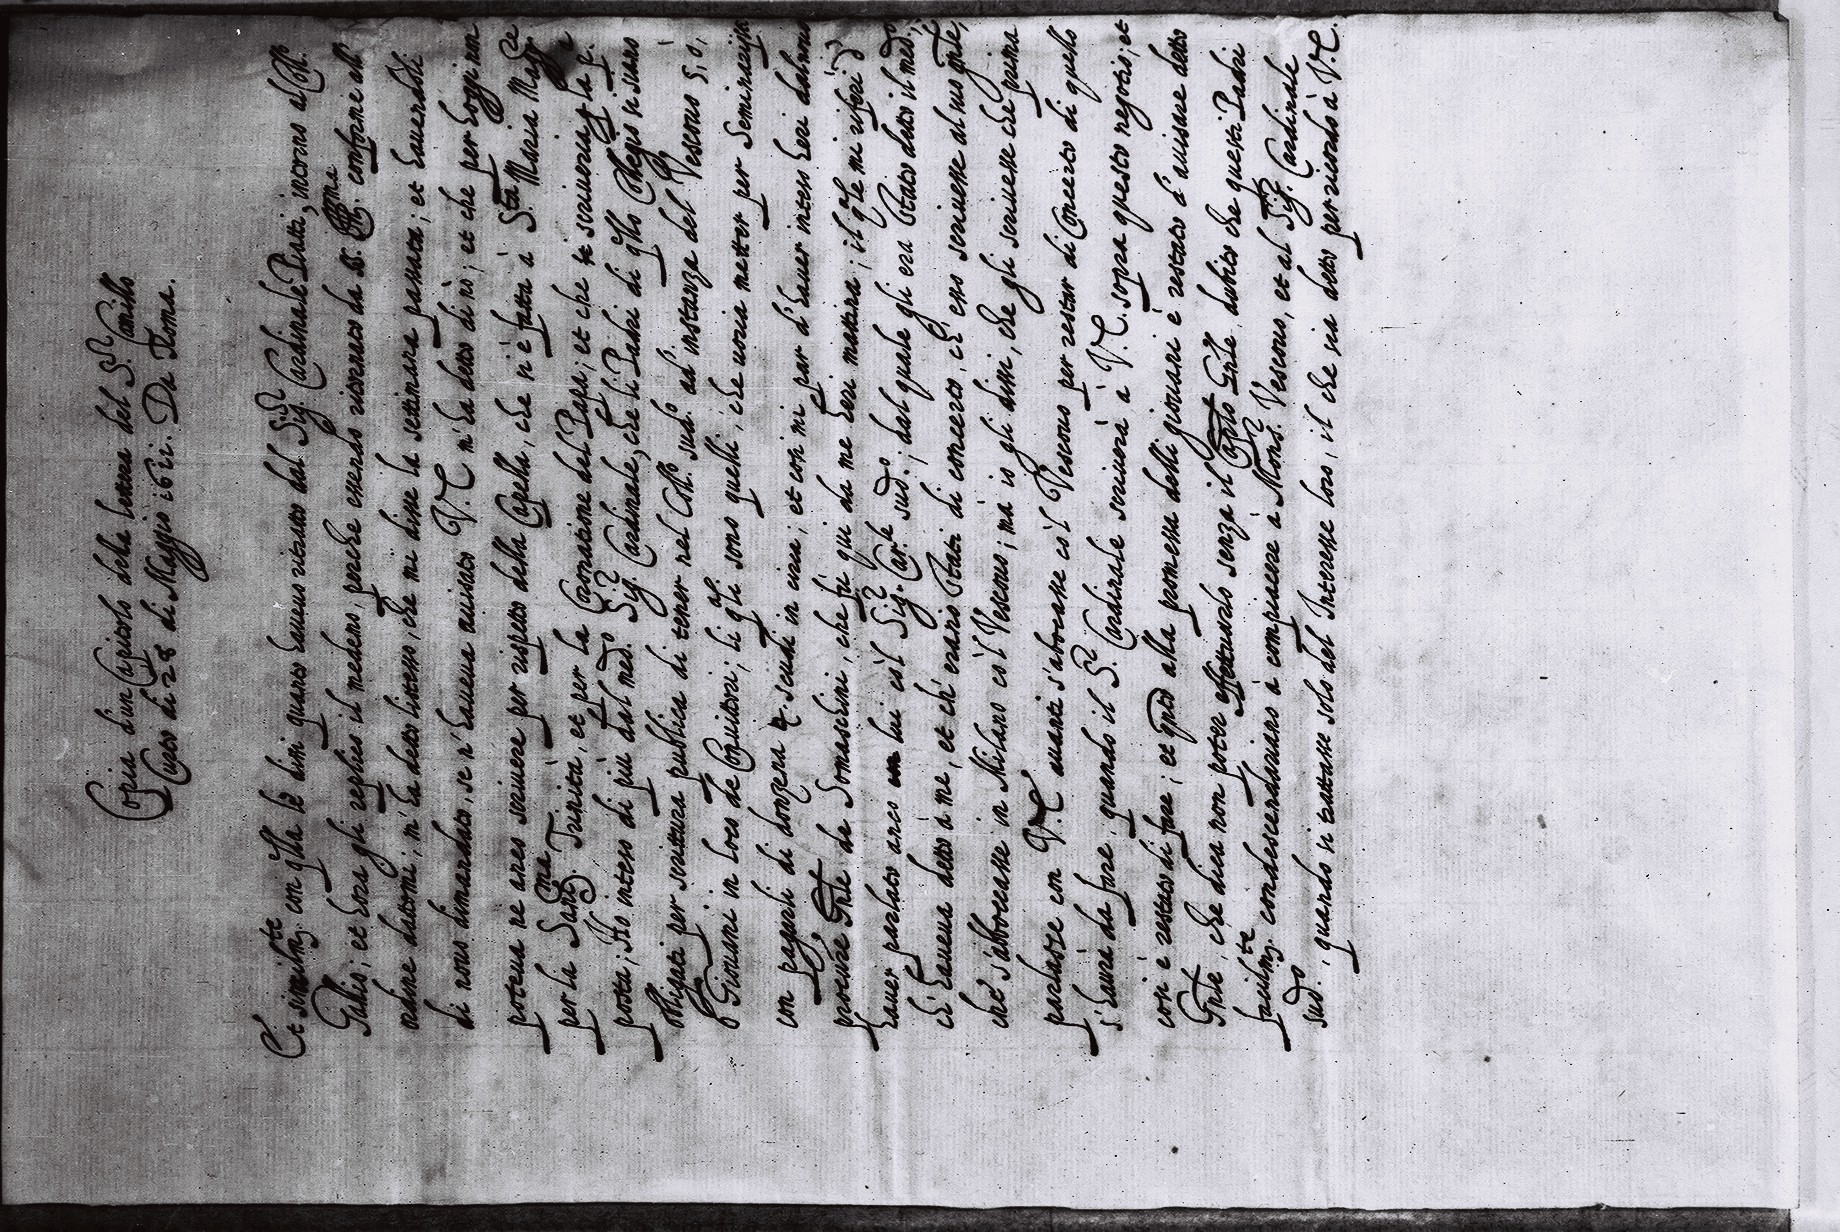 Copia d'un Capitolo della lettera del S.r Camillo
Lucio di 28 di Maggio 1611. Da Roma.
Et similm.te con q.lla le dissi quanto haueuo ritratto dal S.r Sig. Cardinale Piatti, intorno al Coll.
Gallio; et hora gli replico il medemo, perche essendo ritornato da S. S. Ill.ma conforme all
ordine datomi; m'ha detto l'istesso, che mi disse la settimana passata; et hauendoli
di nouo dimandato, se n'haueua auisato V. S. m'ha detto di nò; et che per hoggi non
poteua ne anco scriuere per rispetto della Capella, che si è fatta à S.ta Maria Mag.re
per la Sant.ma Trinità, et per la Coronatione del Papa; et che le scriuerà
posta; Ho inteso di più dal med.o S.r Sig. Cardinale, che li Padri di q.llo Collegio si siano
obligati per scrittura publica di tener nel Coll.o sud.o ad instanza del Vescouo 50,
Giouani in loco de Conuitori; li q.ali sono quelli, che uoria metter per Seminarij
con pagarli di donzena scudi in circa; et così mi par d'hauer inteso heri dal
procur.re G.rale de Somaschini, che fù qui da me heri matina; il q.ale mi riferì d
hauer parlato anco lui co'l S.r Sig. Car.le sud.o; dal quale gli era stato dato il med.o,
ch'haueua detto à me, et ch'erano stati di concerto, ch'esso scriuesse al suo G.rale,
che s'abboccasse in Milano co'l Vescouo; mà io gli dissi, che gli scriuesse che prima
parlasse con V. S. auanti s'aboccasse co'l Vescouo per restar di Concerto di quello
s'haurà da fare, quando il S.r Cardinale scriuerà à V. S. sopra questo negotio; et
così è restato di fare; et q.nto alla promessa delli giouani è restato d'auisare detto
G.rale, che dica non poter effettuarlo senza il Cap.lo G.rale, dubito che questi Padri
facilm.te condescenderiano à compiacere à Mons.r Vescouo, et al S.r Sig. Cardinale
sud.o, quando si trattasse solo del Interesse loro, il che sia detto per ricordo à V. S.